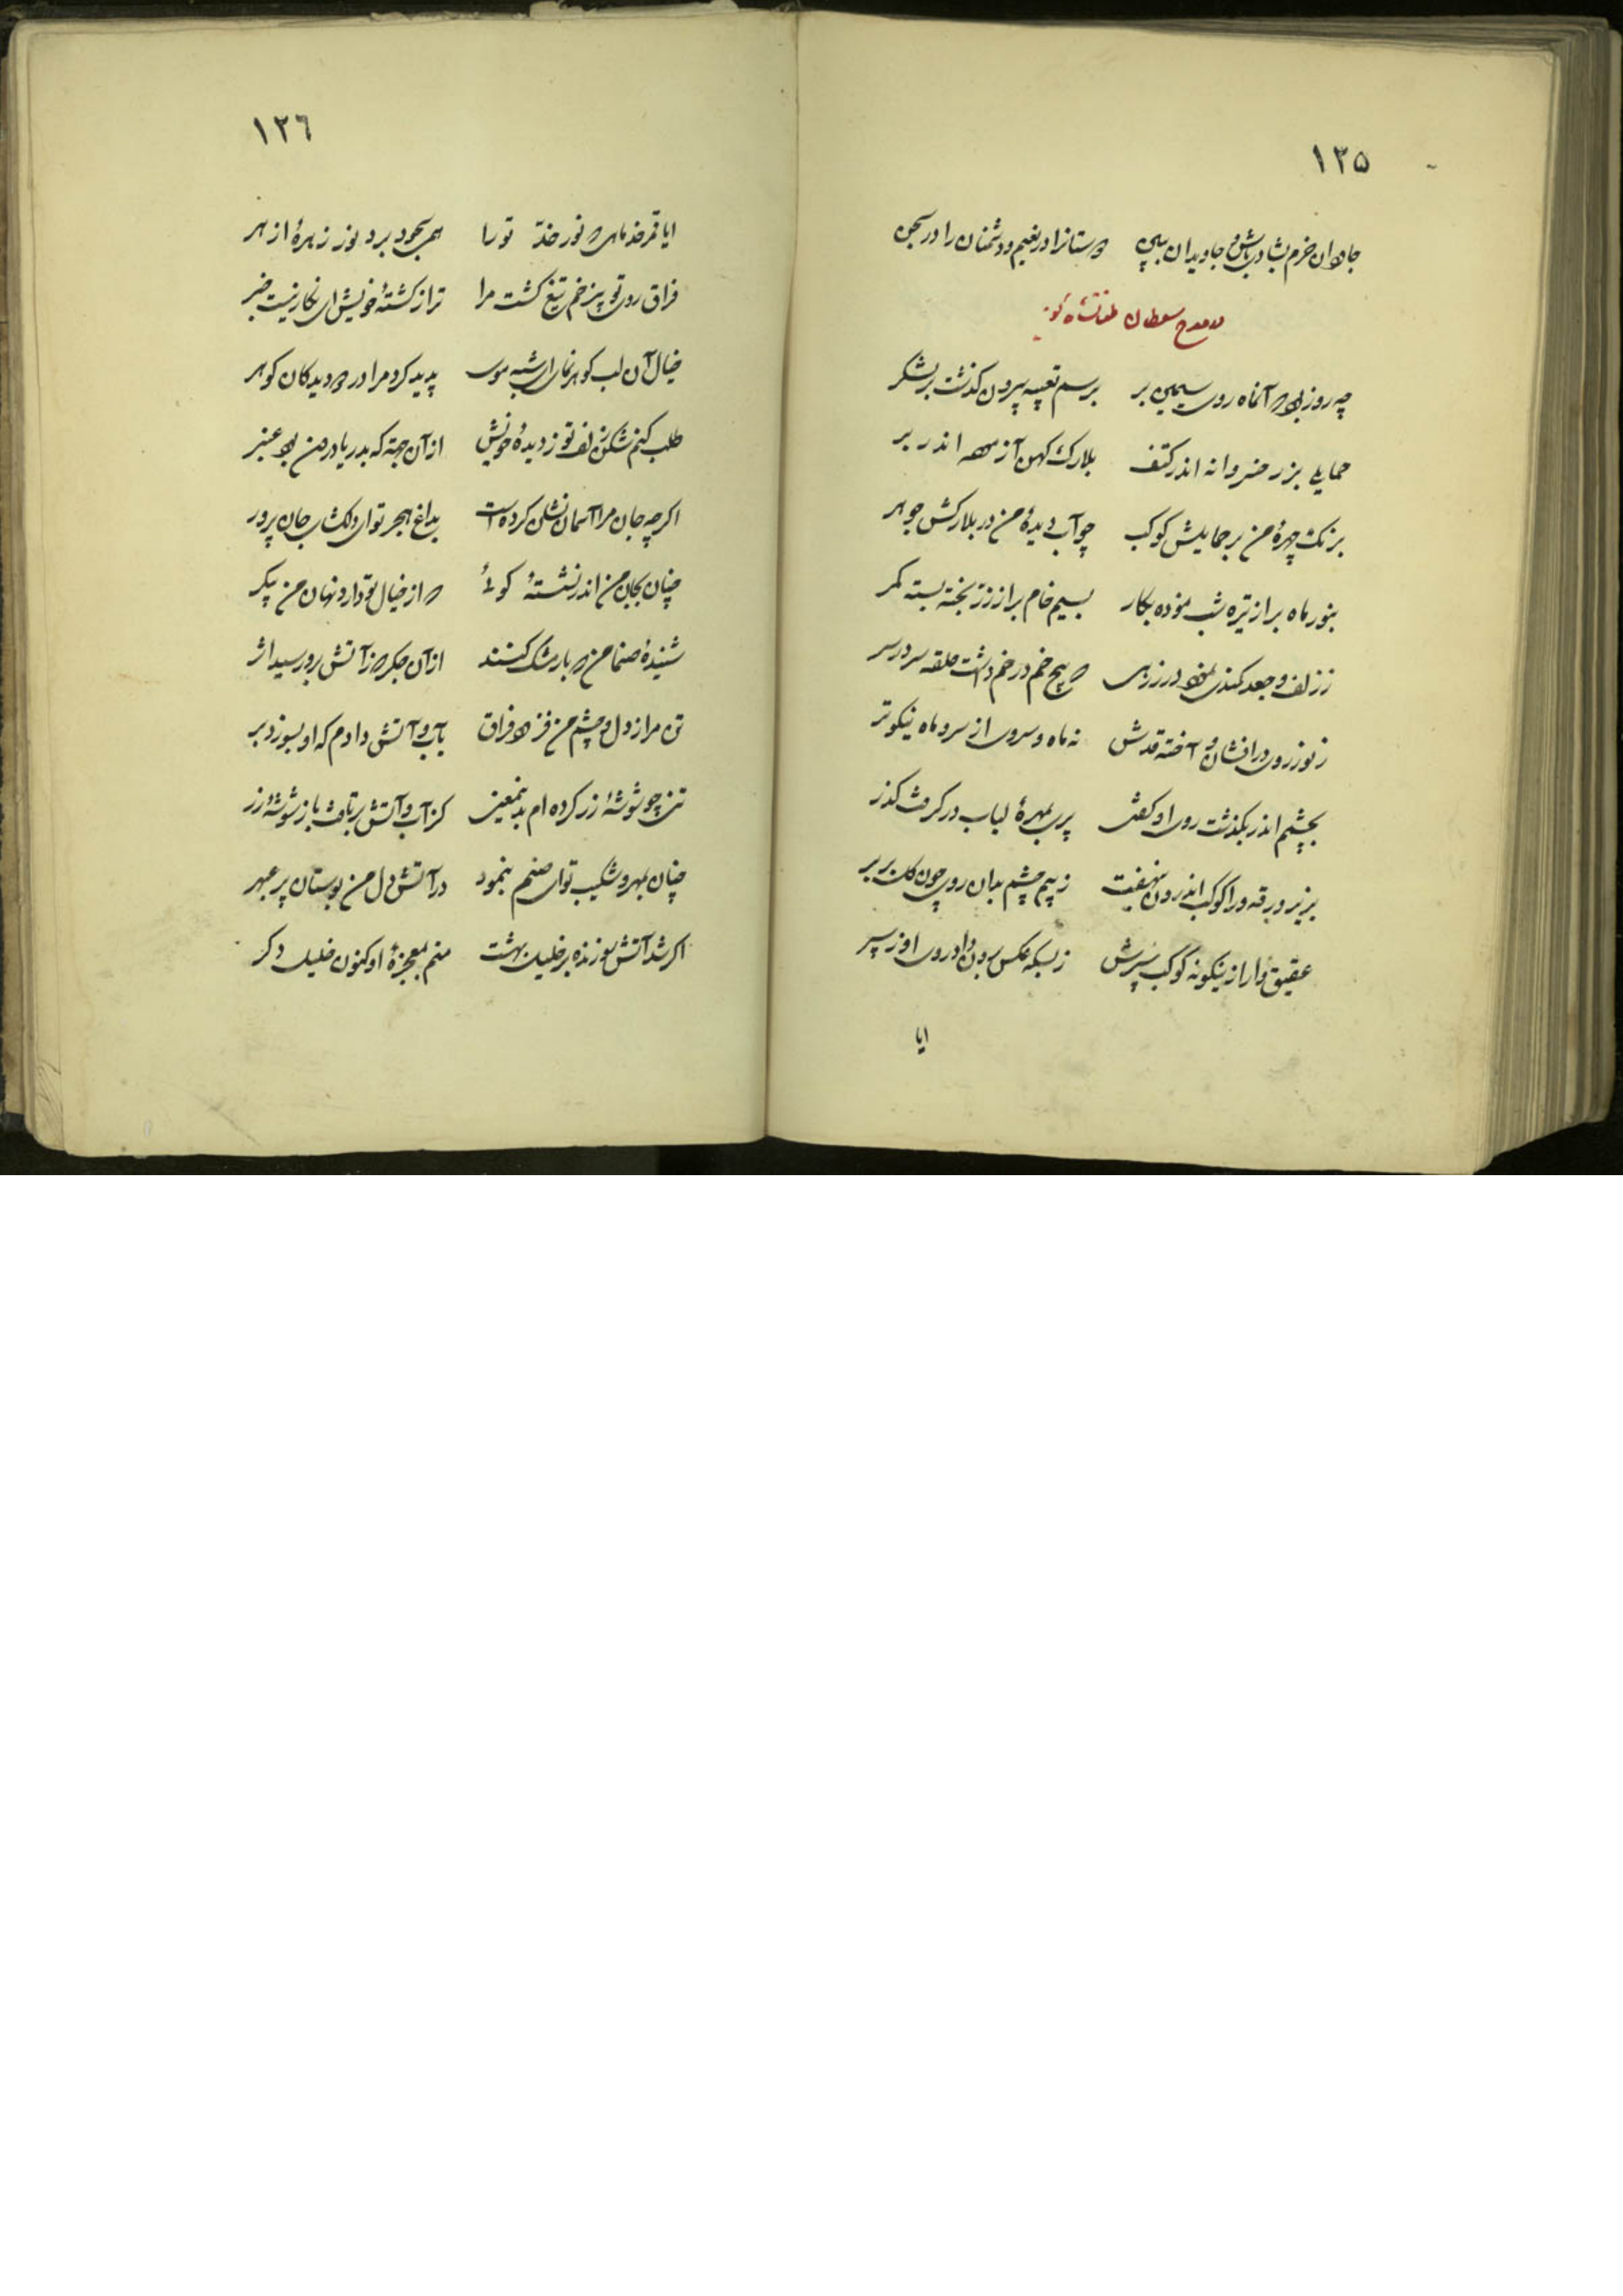 ١٢٥
جاودان خرم بشادی باش و جاویدان ببین دوستانرا در نعیم و دشمنان را در سجن
در مدح سلطان طغانشاه گوید
چه روز بود که آنماه روی سیمین بر برسم تعبیه بیرون گذشت بر لشکر
حمایلی بزر خسروانه اندر کتف بلارک کهن آزموده اندر بر
برنک چهرهٔ من بر حمایلش کوکب چو آب دیدهٔ من در بلارکش جوهر
بنور ماه بر از تیره شب نموده نکار بسیم خام بر از زر پخته بسته کمر
ز زلف و جعد کمندی نمود در زرهی که پیچ خم در خم داشت حلقه سر در سر
ز نور روی درافشان و آخته قدش نه ماه و سروی از سرو و ماه نیکوتر
بچشم اندر بگذشت روی او گفتی پری بمهرهٔ لبلاب در گرفت گذر
بزیر ورقه ورا کوکب اندرون بنهفت ز بیم چشم بدان روی چون گل بربر
عقیق وار از ینگونه کوکب سپرش ز بسکه عکس برون داد روی او ز سپر
ایا
١٢٦
ایا قمر خد ماهی که نور خدّ تو را همی سجود برد نور زهرهٔ ازهر
فراق روی تو بیزخم تیغ کشت مرا ترا ز کشتهٔ خویش ای نکار نیست خبر
خیال آن لب کوهرنمای اشبه موی پدید کرد مرا در دو دیدکان کوهر
طلب کنم شکن زلف تو ز دیدهٔ خویش از آن جهة که بدریا درون بود عنبر
اکرچه جان مرا آسمان نشان کرده است بداغ هجر تو ای دلکشای جان پرور
چنان بجان من اندر نشستهٔ کوئی که از خیال تو دارد نهان من پیکر
شنیدهٔ صنما من که بار مشک کنند از آن جکر که ز آتش برو رسید اثر
تن مرا ز دل و چشم من فزود فراق بآب و آتش دادم که او بسوزد بر
تنی چو شوشهٔ زر کرده ام بدینمعنی کز آب و آتش برتافت باز شوشهٔ زر
چنان بمهر و شکیب توای صنم بنمود در آتش دل من بوستان پر عبهر
اکر شد آتش سوزنده بر خلیل بهشت منم بمعجزهٔ او کنون خلیل دکر